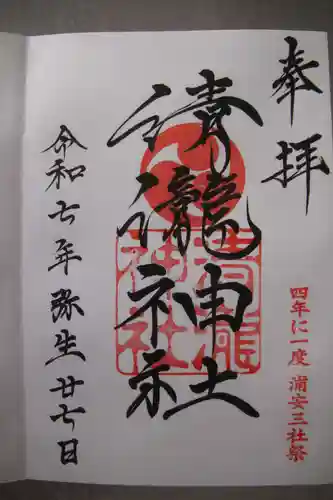 奉拝
清瀧神社
清瀧神社
四年に一度 浦安三社祭
令和七年弥生廿七日